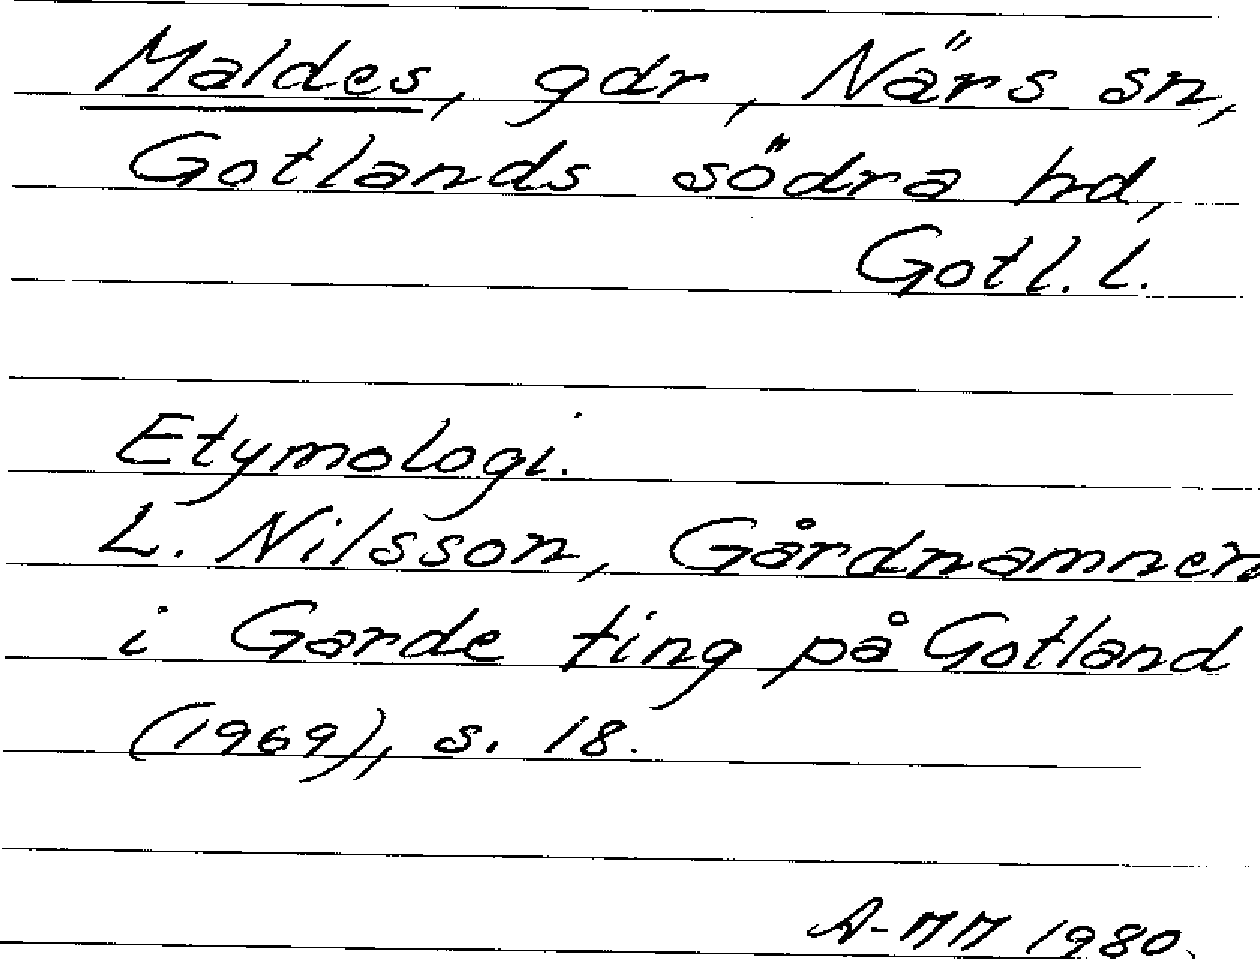 Maldes, gdr, Närs sn,
Gotlands södra hd,
Gotl. l.
Etymologi.
L. Nilsson, Gårdnamnen
i Garde ting på Gotland
(1969), s. 18.
A-MM 1980.